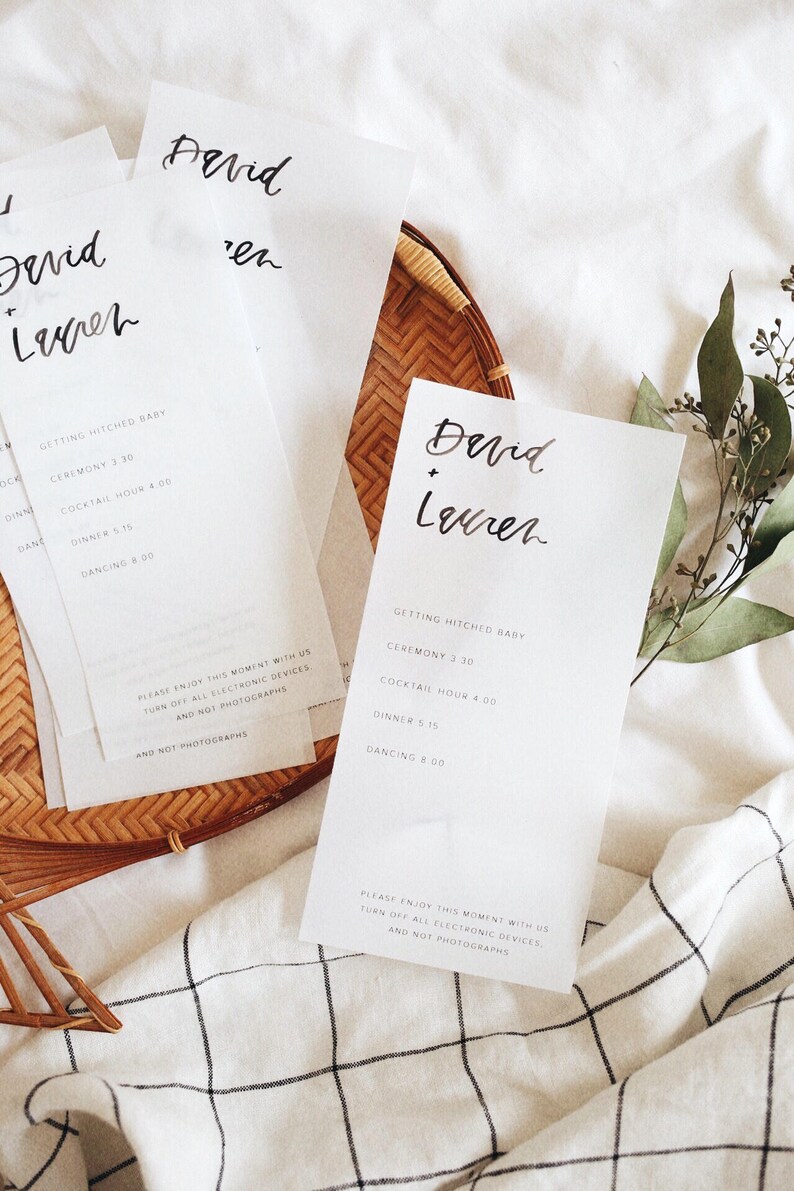 David
Lauren
David
+
Lauren
GETTING HITCHED BABY
CEREMONY 3.30
COCKTAIL HOUR 4.00
DINNER 5.15
DANCING 8.00
PLEASE ENJOY THIS MOMENT WITH US
TURN OFF ALL ELECTRONIC DEVICES,
AND NOT PHOTOGRAPHS
AND NOT PHOTOGRAPHS
David
+
Lauren
GETTING HITCHED BABY
CEREMONY 3.30
COCKTAIL HOUR 4.00
DINNER 5.15
DANCING 8.00
PLEASE ENJOY THIS MOMENT WITH US
TURN OFF ALL ELECTRONIC DEVICES,
AND NOT PHOTOGRAPHS